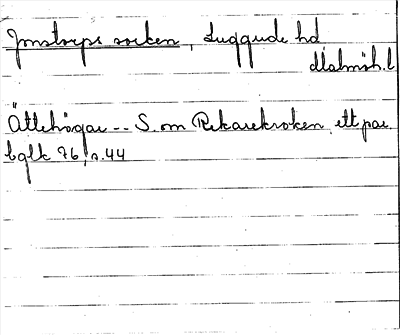 Jonstorps socken, Luggude hd
Malmöh. l
Ättehögar -- S. om Rekarekroken, ett par
bglk 76, s. 44